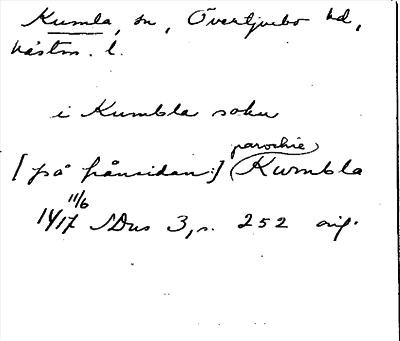 Kumla, sn, Övertjurbo hd,
Västm. l.
i Kumbla sokn
parochie
[på frånsidan:] (Kumbla
11/6
1417 SDns 3, s. 252 orig.